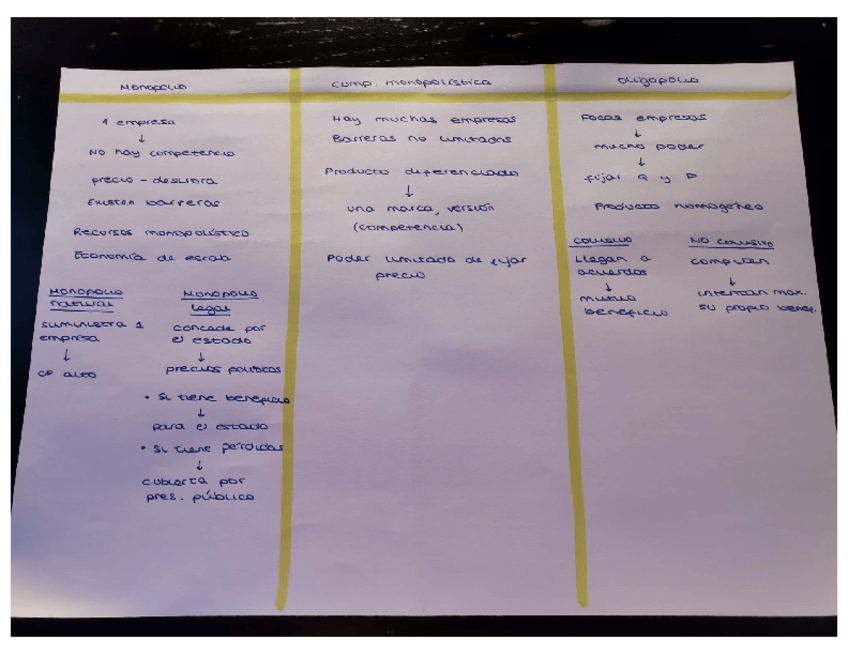 MONOPOLIO
1 empresa
↓
NO hay competencia
precio - deslibra
Existen barreras
Recursos monopolístico
Economía de escala
MONOPOLIO natural
suministra 1
empresa
↓
CF alto
MONOPOLIO legal
concede por
el estado
↓
precios políticos
• Si tiene beneficio
↓
para el estado
• Si tiene pérdidas
↓
cubierta por
pres. público
comp. monopolística
Hay muchas empresas
Barreras no limitados
Producto diferenciado
↓
una marca, versión
(competencia)
Poder limitado de fijar
precio
oligopolio
Pocas empresas
↓
mucho poder
↓
fijar Q y P
Producto homogéneo
COLUSIVO
Llegan a
acuerdos
↓
mutuo
beneficio
NO COLUSIVO
compiten
↓
intentan max.
su propio benef.